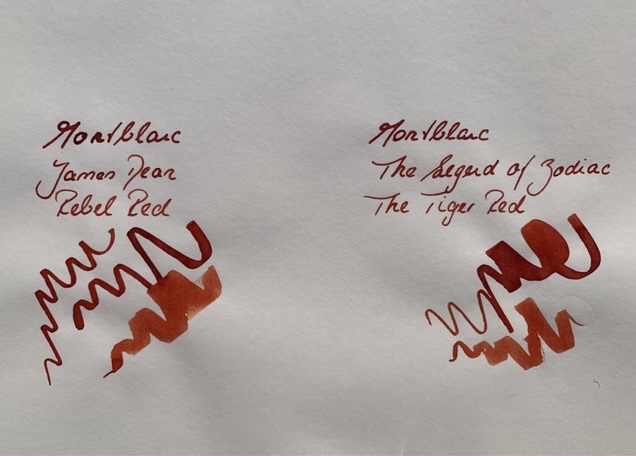 Montblanc
James Dean
Rebel Red
Montblanc
The Legend of Zodiac
The Tiger Red